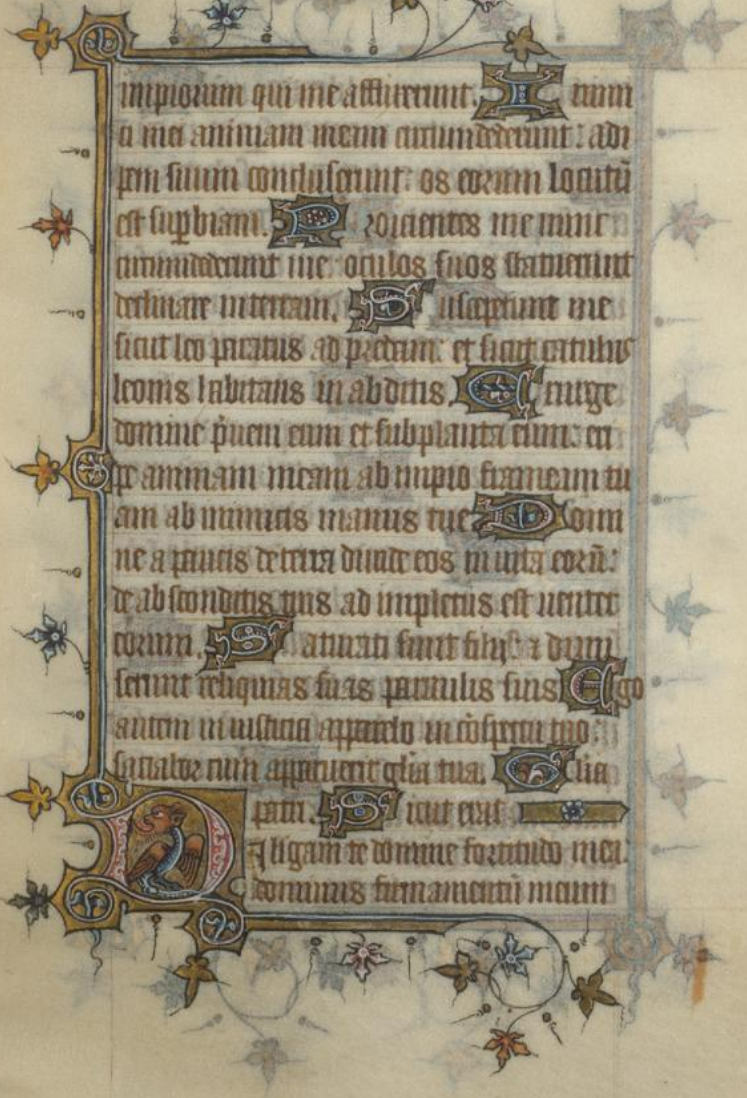 impiorum qui me afflixerunt. Inimi
ci mei animam meam circumdederunt: adi
pem suum concluserunt: os eorum locutū
est sup̄biam. Proicientes me nunc
circumdederunt me: oculos suos statuerunt
declinare in terram. Susceperunt me
sicut leo paratus ad predam: et sicut catulus
leonis habitans in abditis. Exurge
domine p̄ueni eum et subplanta eum: eri
pe animam meam ab impio frameam tu
am ab inimicis manus tue. Domi
ne a paucis de terra diuide eos in uita eorū:
de absconditis tuis ad impletus est uenter
eorum. Saturati sunt filijs: & dimi
serunt reliquias suas paruulis suis. Ego
autem in iusticia apparebo in cōspectu tuo:
satiabor cum apparuerit gl̄ia tua. Gl̄ia
patri. Sicut erat
Diligam te domine fortitudo mea:
dominus firmamentū meum